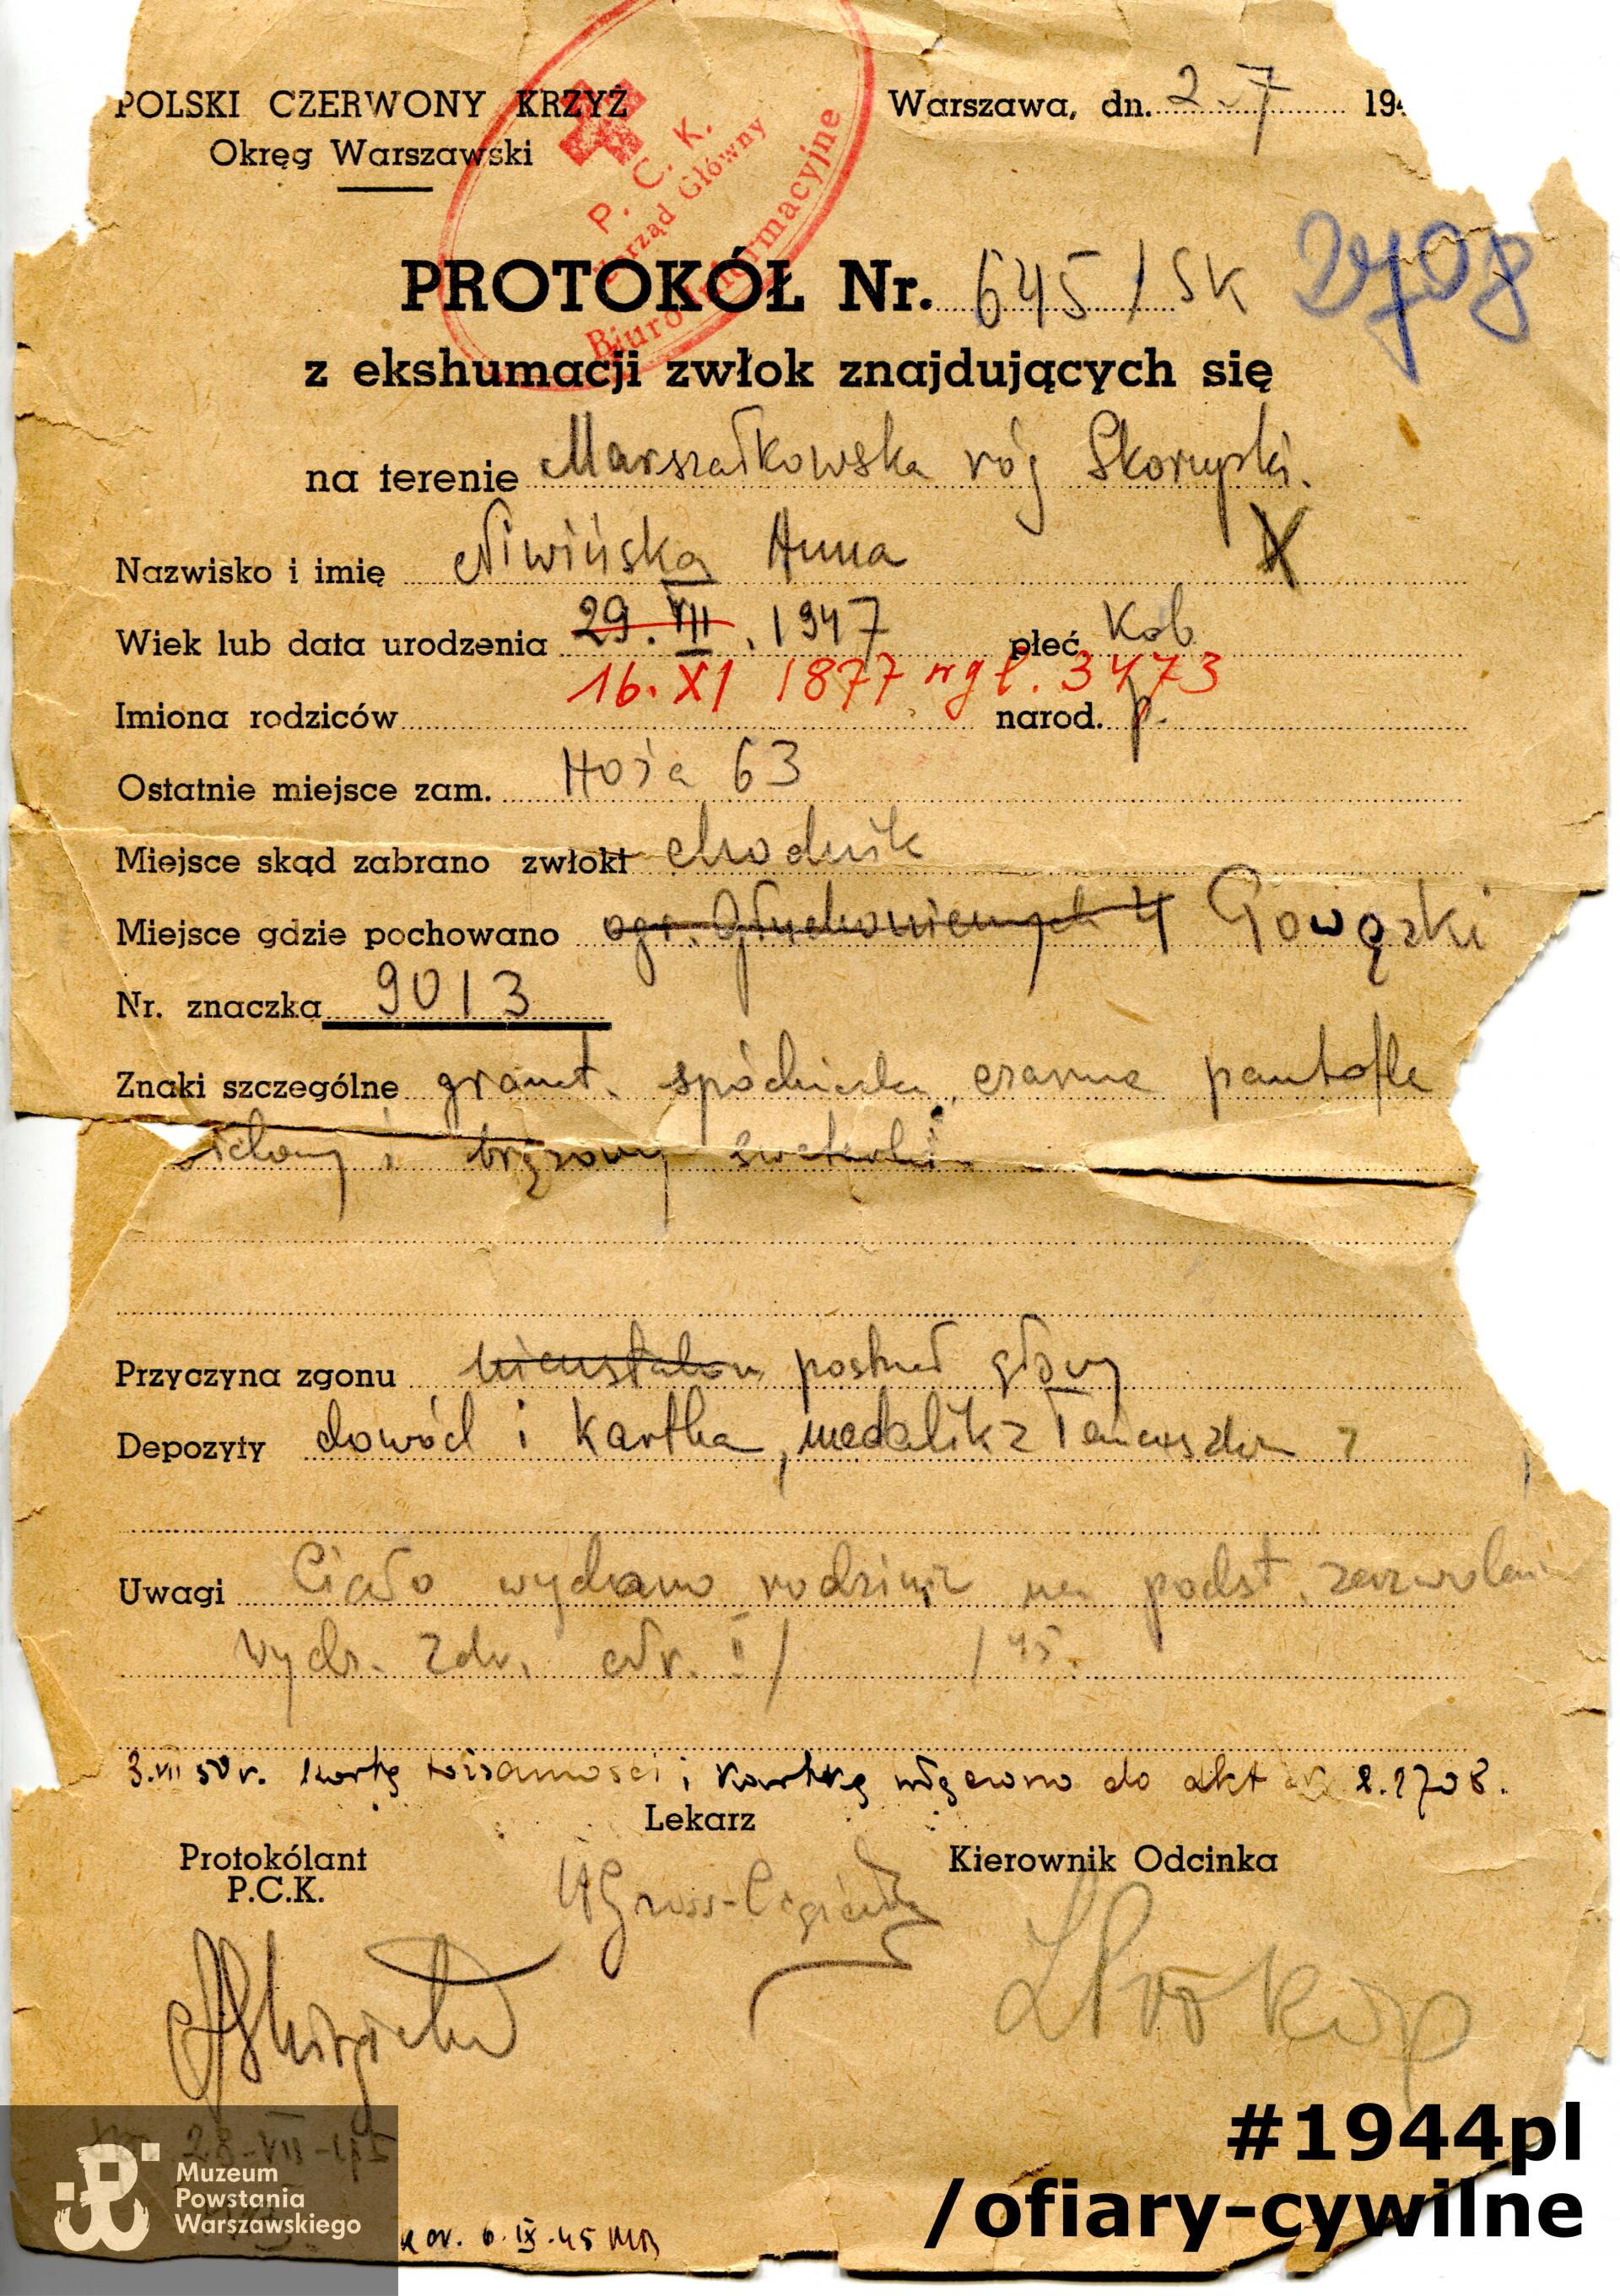 POLSKI CZERWONY KRZYŻ
Okręg Warszawski
Warszawa, dn. 2 7 194
P. C. K.
Zarząd Główny
Biuro Informacyjne
PROTOKÓŁ Nr. 645/SK 2708
z ekshumacji zwłok znajdujących się
na terenie Marszałkowska róg Skorupki.
Nazwisko i imię Niwińska Anna X
Wiek lub data urodzenia 29. VII. 1947 płeć Kob
16. XI 1877 wg l. 3473
Imiona rodziców narod. p.
Ostatnie miejsce zam. Hoża 63
Miejsce skąd zabrano zwłoki chodnik
Miejsce gdzie pochowano ogr. Głuchoniemych 4 Powązki
Nr. znaczka 9013
Znaki szczególne granat. spódniczka, czarne pantofle
zielony i brązowy sweterki
Przyczyna zgonu nieustalon postrzał głowy
Depozyty dowód i Kartka, medalik z łańcuszkim
Uwagi Ciało wydano rodzinie na podst. zezwoleni
Wydz. Zdr. II/ /45.
3.VII 50 r. kartę tożsamości i kartkę włączono do akt 2708.
Lekarz
Protokólant
P.C.K.
Kierownik Odcinka
WGross-
Prokop
28-VII-45
6.IX.45 MB
Muzeum
Powstania
Warszawskiego
#1944pl
/ofiary-cywilne